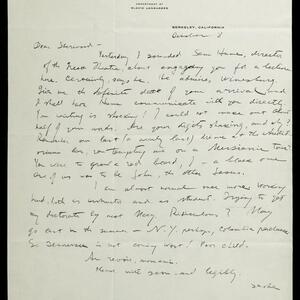 DEPARTMENT OF
SLAVIC LANGUAGES
BERKELEY, CALIFORNIA
October 8
Dear Sherwood —
Yesterday I sounded Sam Hume, director
of the Greek Theatre, about engaging you for a lecture
here. Certainly, says he. He admires Winesburg.
Give me the definite date of your arrival and
I shall have Hume communicate with you directly.
Your writing is shocking! I could not make out
half of your words. Are your
on a Messianic tour?
You were to grow a red beard, I — a black one
One of us was to be John, the other Jesus.
I am almost normal once more. Working
hard, both as instructor and as student. Trying to get
my doctorate by next May. Ridiculous? May
go east in the summer — N.Y. perhaps, Columbia
So Tennessee is not coming West? Poor child.
Au revoir,
Please write soon — and legibly.